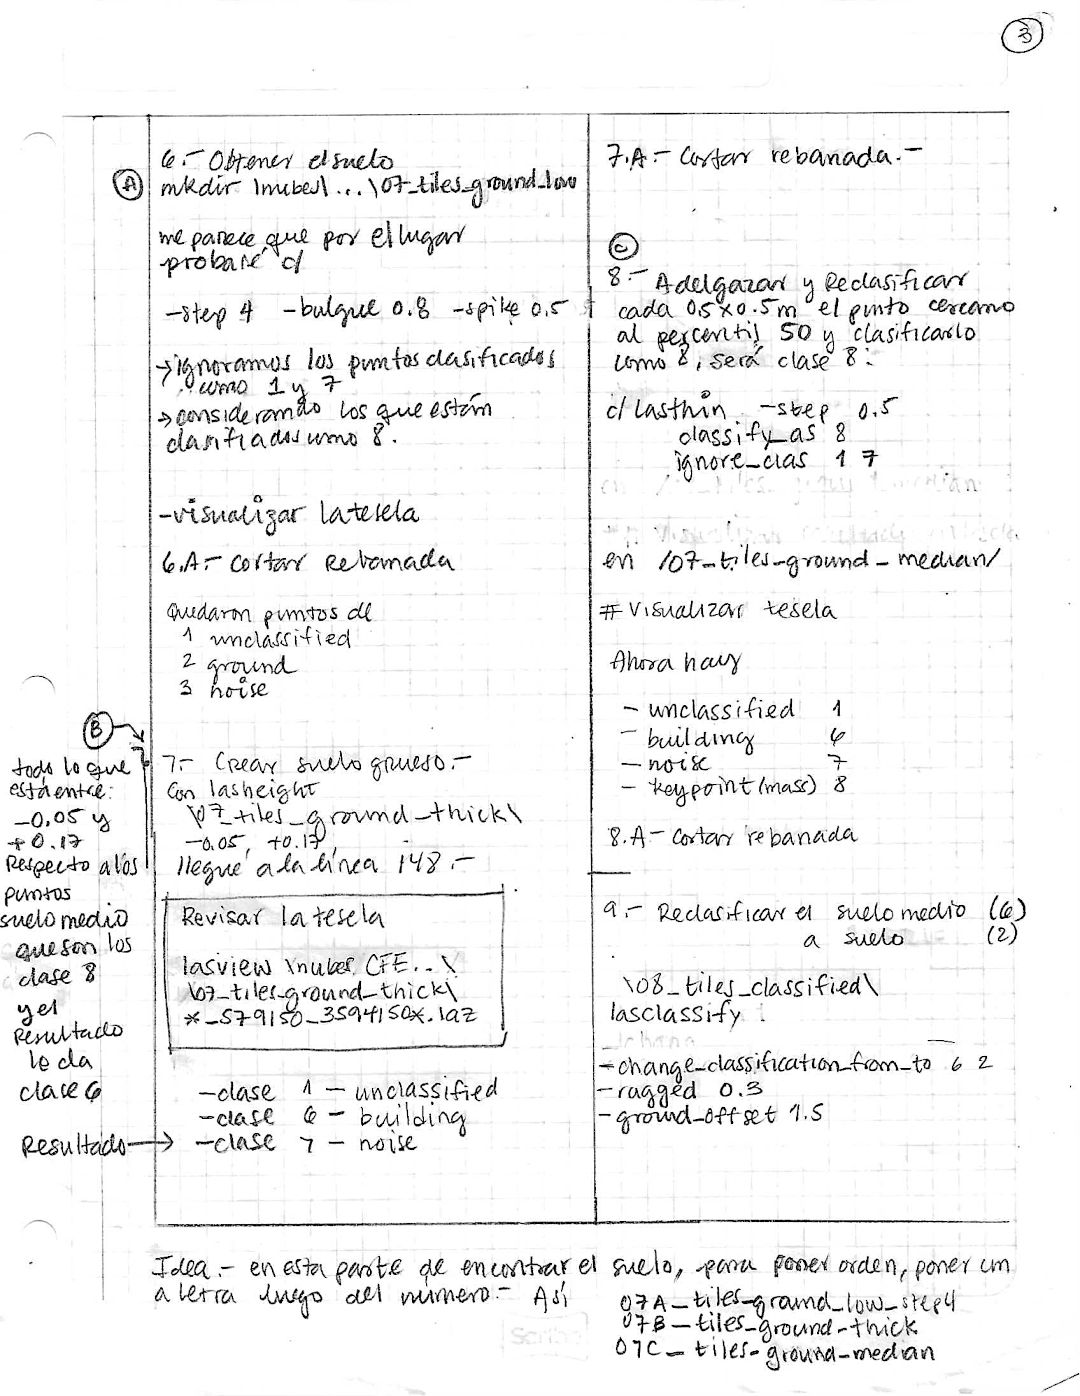 3
A
6.- Obtener el suelo
mkdir \nubes\...\07_tiles_ground_low
me parece que por el lugar
probaré c/
-step 4 -bulgue 0.8 -spike 0.5
→ ignoramos los puntos clasificados
como 1 y 7
→ considerando los que están
clasificados como 8.
-visualizar la tesela
6.A.- Cortar Rebanada
Quedaron puntos de
1 unclassified
2 ground
3 noise
B
7.- Crear suelo grueso.-
Con lasheight
\07_tiles_ground_thick\
-0.05, +0.17,
llegué a la línea 148.-
todo lo que
está entre:
-0.05 y
+0.17
Respecto a los
puntos
suelo medio
que son los
clase 8
y el
Resultado
le da
clase 6
Revisar la tesela
lasview \nubes CFE..\
\07_tiles_ground_thick\
*_579150_3594150*.laz
-clase 1 - unclassified
-clase 6 - building
Resultado → -clase 7 - noise
7.A.- Cortar rebanada.-
C
8.- Adelgazar y Reclasificar
cada 0.5x0.5m el punto cercano
al percentil 50 y clasificarlo
como 8, será clase 8:
c/ lasthin -step 0.5
classify_as 8
ignore_clas 1 7
en /07_tiles_ground_median/
# Visualizar tesela
Ahora hay
- unclassified 1
- building 6
- noise 7
- keypoint (mass) 8
8.A- Cortar rebanada
9.- Reclasificar el suelo medio (6)
a suelo (2)
\08_tiles_classified\
lasclassify
-change_classification_from_to 6 2
-rugged 0.3
-ground_offset 1.5
Idea.- en esta parte de encontrar el suelo, para poner orden, poner un
a letra luego del número.- Así
07A_tiles-ground_low_step4
07B_tiles_ground-thick
07C_tiles-ground-median